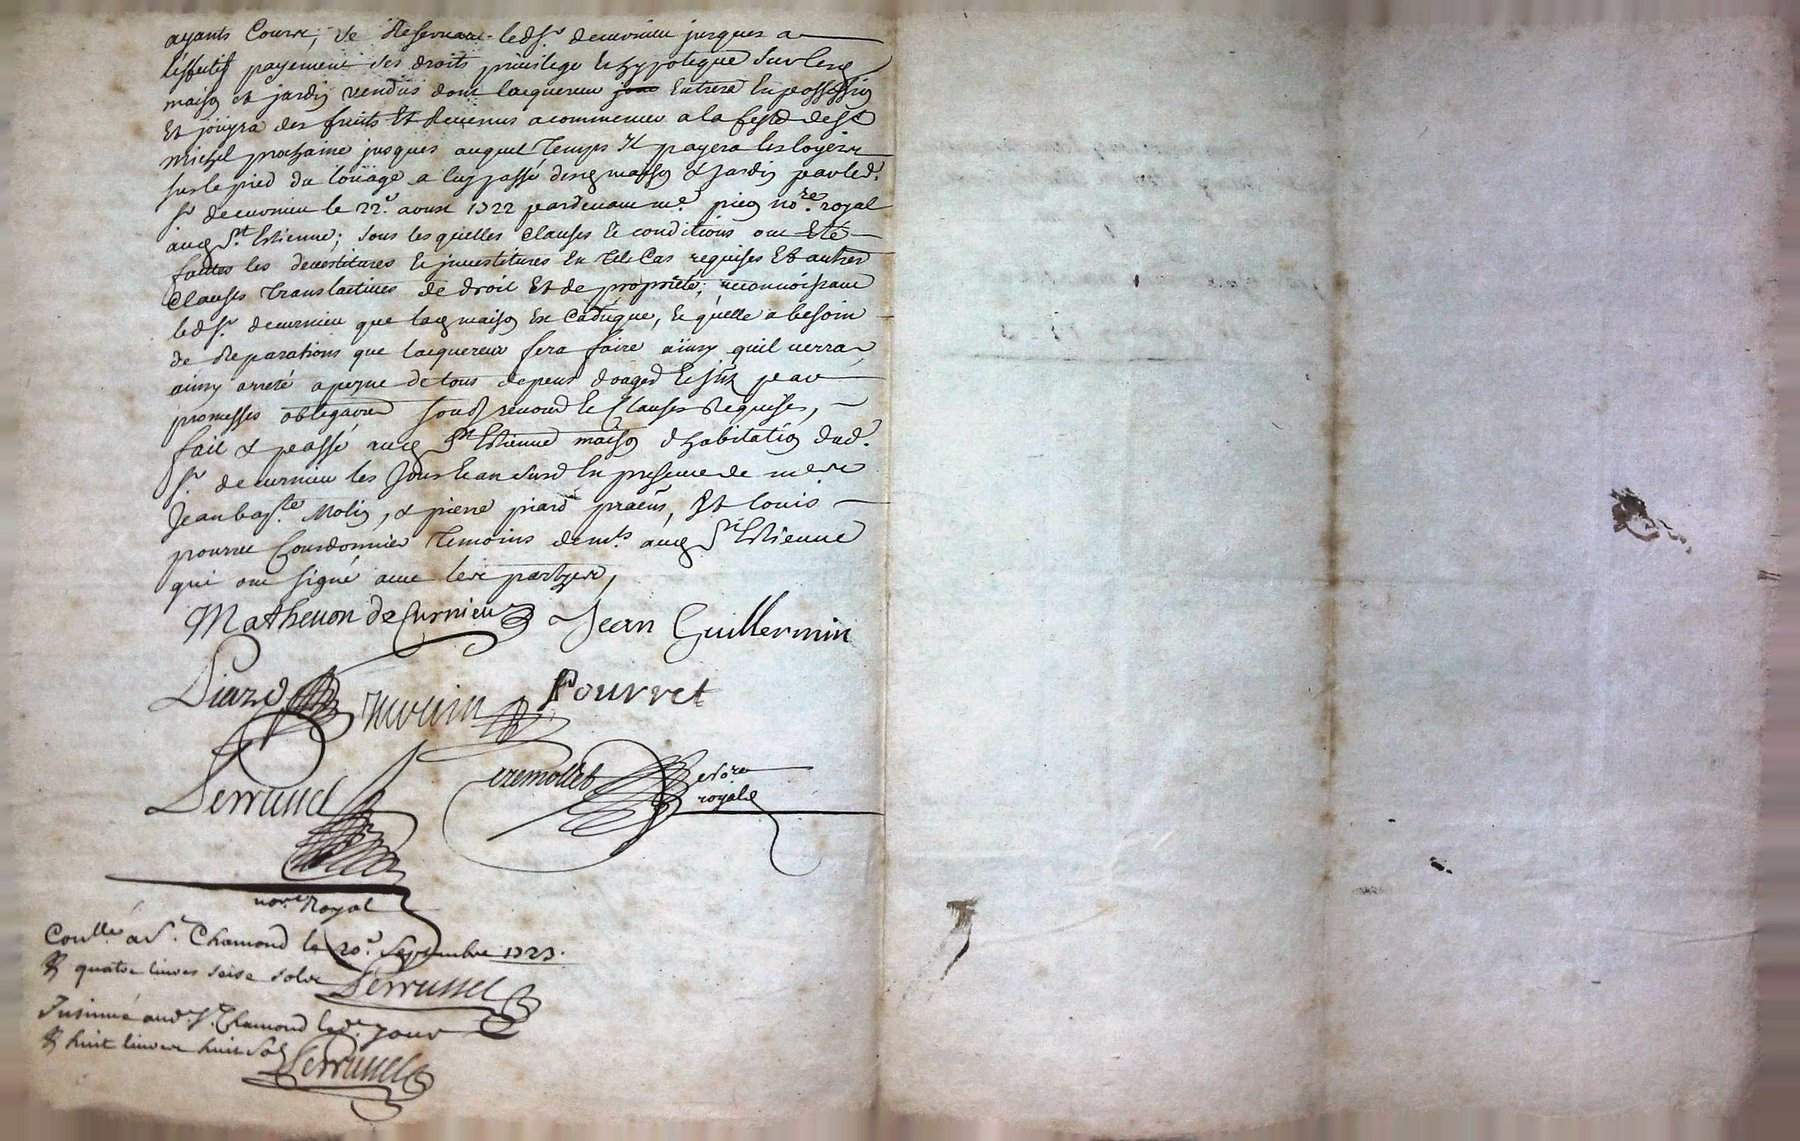 ayants Cours, se Reservant ledsr decurnieu jusques a
leffectif payement ses droits privilege & hypoteque sur les
maison et jardin vendus dont lacquereur Entrera En possession
Et jouyra des fruits Et Revenus a commencer a la feste de St
michel prochaine jusques auquel Temps Il payera les loyers
sur le pied du loüage a luy passé desd maison & jardin par led.
sr decurnieu le 22e aoust 1722 pardevant me nore royal
aud St Estienne; sous lesquelles clauses & conditions ont Eté
faittes les devestitures & investitures En tels Cas requises Et autres
clauses Translatives de droit Et de proprieté; reconnoissant
ledsr decurnieu que lad maison Est Caduque, & qu'elle a besoin
de Reparations que lacquereur fera faire ainsy quil verra
ainsy arreté a peyne de tous depens domages & par
promesses obligaõns renonõn & Clauses Requises,
fait & passé aud St Estienne maison d'habitation dud.
sr decurnieu les Jour & an susd En presence de
Jean bapte Molin, & pierre piard praens, Et louis
pourret Courdonnier Temoins demts aud St Estienne
qui ont signé avec les partyes,
Mathevon de Curnieu Jean Guillermin
Piard Molin Pourret
Perrussel Tremollet Nore
royal
nore Royal
Conllé a St. Chamond le 20e Septembre 1723.
R quatre livres seise sols Perrussel
Insinué aud. St. Chamond led. jour
R huit livres huit sols Perrussel